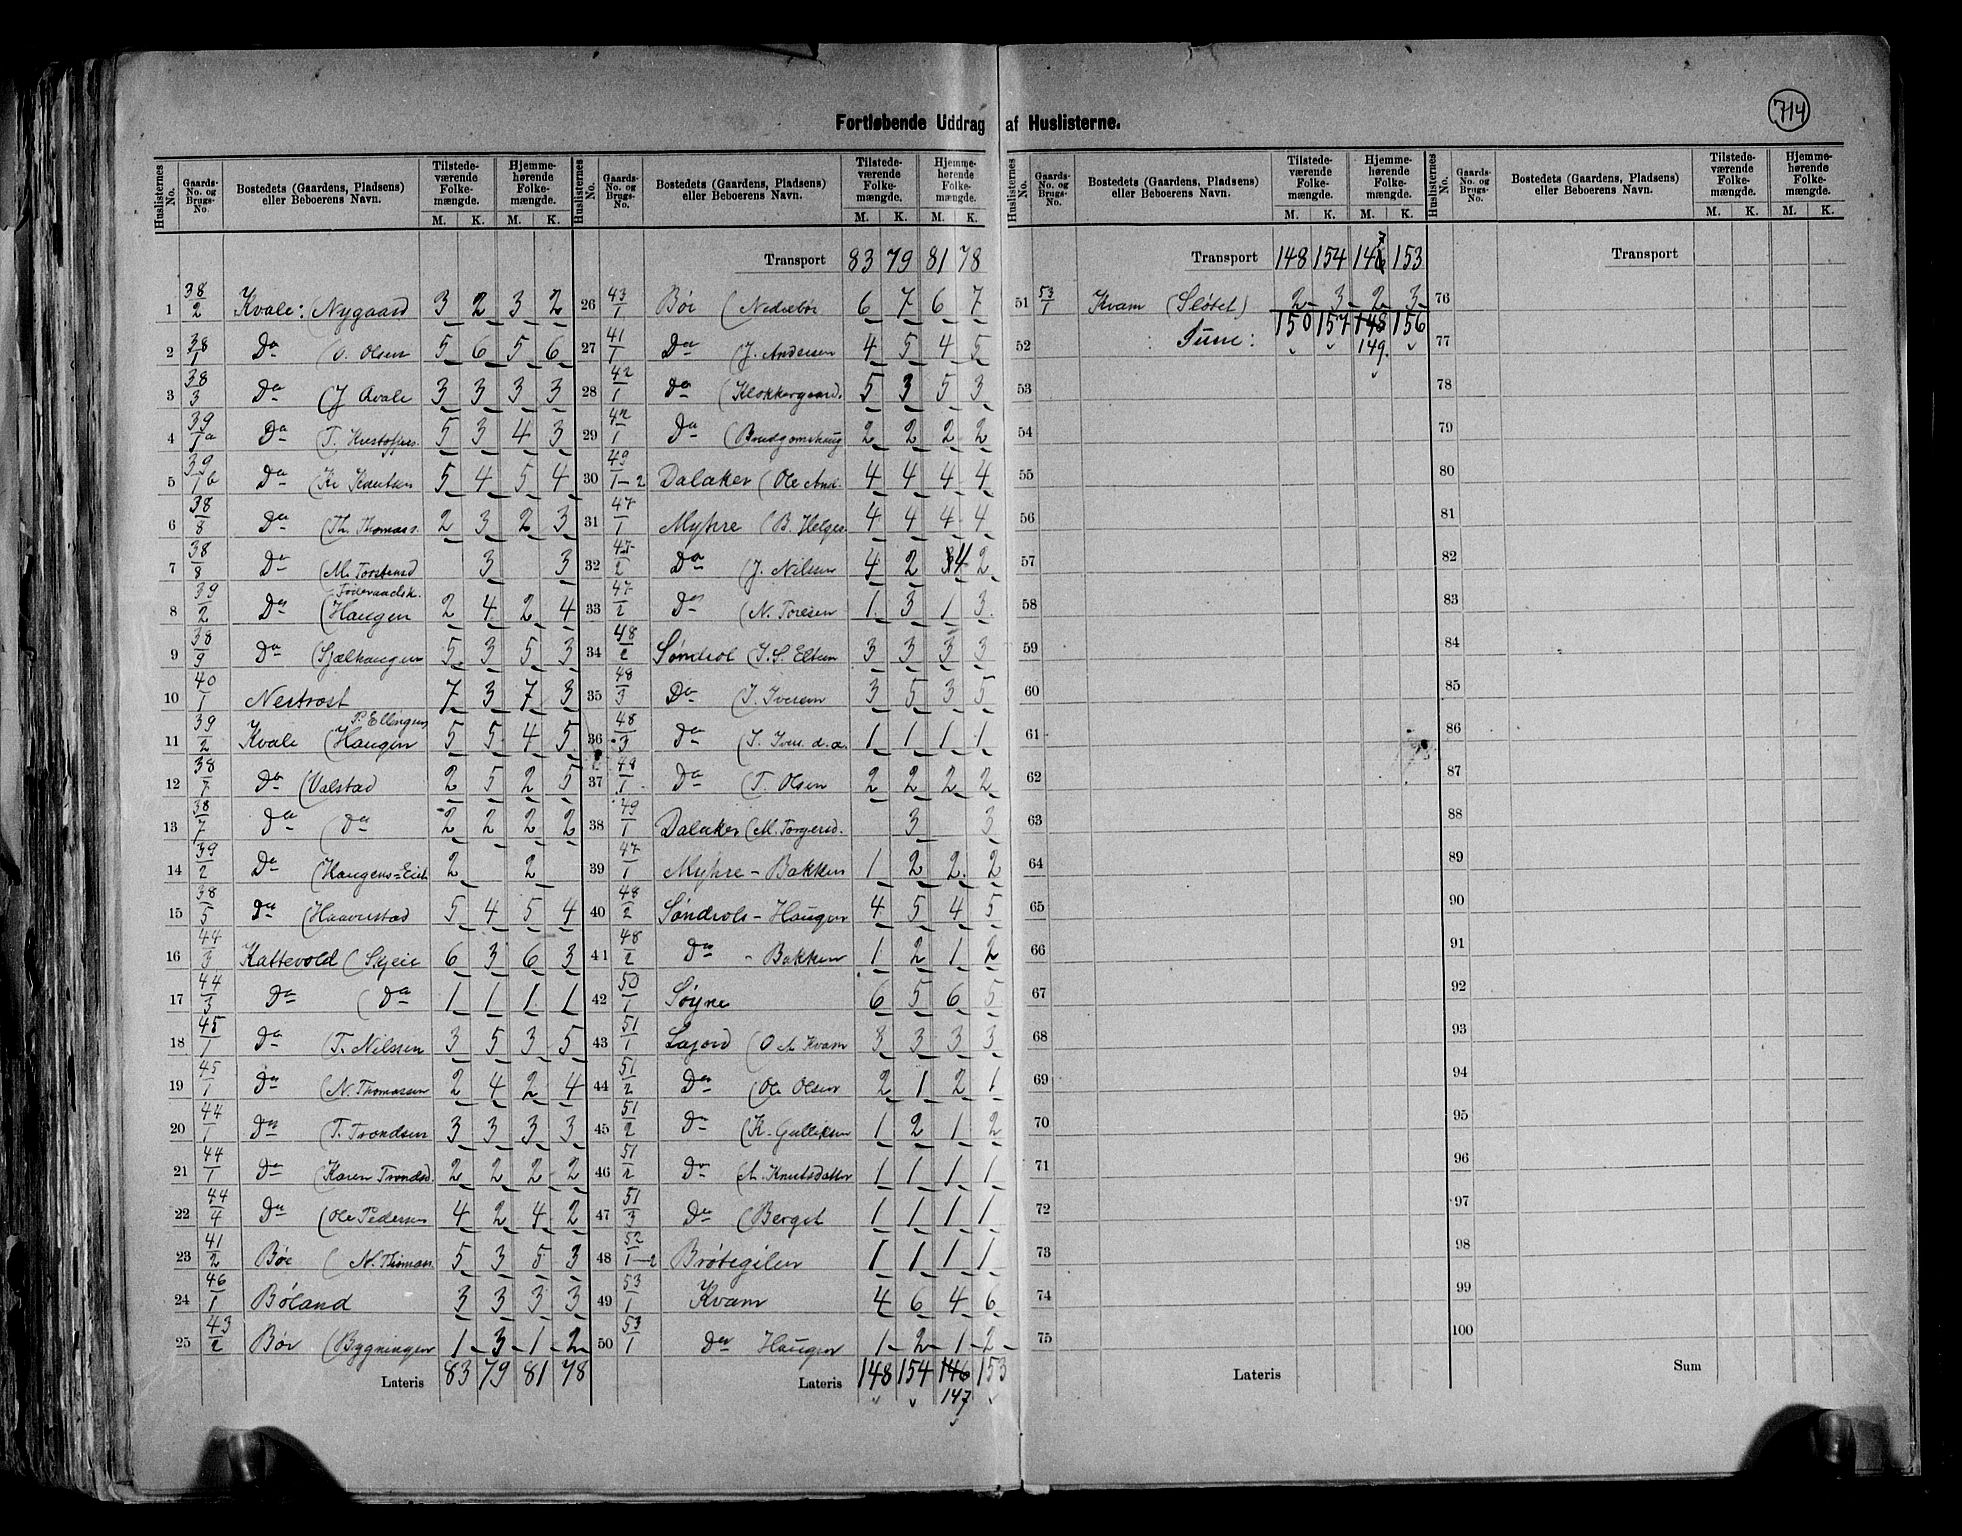 714
Fortløbende Uddrag af Huslisterne.
Huslisternes No. Gaards-No. og Brugs-No. Bostedets (Gaardens, Pladsen) eller Beboerens Navn. Tilstede-værende Folke-mængde. M. K. Hjemme-hørende Folke-mængde. M. K.
1 38/2 Kvale: (Nygaard 3 2 3 2
2 38/1 Da (O. Olsen 5 6 5 6
3 38/3 Da (J Kvale 3 3 3 3
4 39/1a Da (T. Kristoffers. 5 3 4 3
5 39/1b Da (Kr 5 4 5 4
6 38/8 Da (Th. Thomass. 2 3 2 3
7 38/8 Da (M. Torstensd 3 3
Føderaadsk.
8 39/2 Da (Haugen 2 4 2 4
9 38/9 Da (Sjælhaugen 5 3 5 3
10 40/1 Nestrost 7 3 7 3
P. Ellingsen
11 39/2 Kvale (Haugen 5 5 4 5
12 38/7 Da (Valstad 2 5 2 5
13 38/7 Da (Da 2 2 2 2
14 39/2 Da (Haugens=Eiet 2 2
15 38/5 Da (Haaverstad 5 4 5 4
16 44/3 Kattevold (Skjeie 6 3 6 3
17 44/3 Da (Da 1 1 1 1
18 45/1 Da (T. Nilssen 3 5 3 5
19 45/1 Da (N. Thomassen 2 4 2 4
20 44/1 Da (T. Trondsen 3 3 3 3
21 44/1 Da (Karen Trondsd. 2 2 2 2
22 44/4 Da (Ole Pedersen 4 2 4 2
23 41/2 Bøe (N. Thomass. 5 3 5 3
24 46/1 Bøland 3 3 3 3
25 43/2 Bøe (Bygningen 1 3 1 2
Lateris 83 79 81 78
Huslisternes No. Gaards-No. og Brugs-No. Bostedets (Gaardens, Pladsen) eller Beboerens Navn. Tilstede-værende Folke-mængde. M. K. Hjemme-hørende Folke-mængde. M. K.
Transport 83 79 81 78
26 43/1 Bøe (Nedrebøe 6 7 6 7
27 41/1 Da (J. Andersen 4 5 4 5
28 42/1 Da (Klokkergaard. 5 3 5 3
29 42/1 Da (Brudgomshaug 2 2 2 2
30 49/1-2 Dalaker (Ole And. 4 4 4 4
31 47/1 Myhre (B. Helges. 4 4 4 4
32 47/2 Da (J. Nilsen 4 2 4 2
33 47/2 Da (N. Toresen 1 3 1 3
34 48/2 Søndrol (T. S. Eltun 3 3 3 3
35 48/3 Da (I. Iversen 3 5 3 5
36 48/3 Da (I. Ivers. d.æ. 1 1 1 1
37 48/1 Da (T. Olsen 2 2 2 2
38 49/1 Dalaker (M. Torgersd. 3 3
39 47/1 Myhre - Bakken 1 2 2 2
40 48/2 Søndrols - Haugen 4 5 4 5
41 48/2 Da - Bakken 1 2 1 2
42 50/1 Søyne 6 5 6 5
43 51/1 Lajord (O A Kvam 3 3 3 3
44 51/2 Da (Ole Olsen 2 1 2 1
45 51/2 Da (K. Gulleksen 1 2 1 2
46 51/2 Da (A. Knutsdatter 1 1 1 1
47 51/3 Da (Berget 1 1 1 1
48 52/1-2 Brøtegilen 1 1 1 1
49 53/1 Kvam 4 6 4 6
50 53/1 Da Haugen 1 2 1 2
Lateris 148 154 146 153
147
Huslisternes No. Gaards-No. og Brugs-No. Bostedets (Gaardens, Pladsen) eller Beboerens Navn. Tilstede-værende Folke-mængde. M. K. Hjemme-hørende Folke-mængde. M. K.
Transport 148 154 147 153
51 53/1 Kvam (Sløtet) 2 3 2 3
150 157 148 156
52 Sum:
149
53
54
55
56
57
58
59
60
61
62
63
64
65
66
67
68
69
70
71
72
73
74
75
Lateris
Huslisternes No. Gaards-No. og Brugs-No. Bostedets (Gaardens, Pladsen) eller Beboerens Navn. Tilstede-værende Folke-mængde. M. K. Hjemme-hørende Folke-mængde. M. K.
Transport
76
77
78
79
80
81
82
83
84
85
86
87
88
89
90
91
92
93
94
95
96
97
98
99
100
Sum